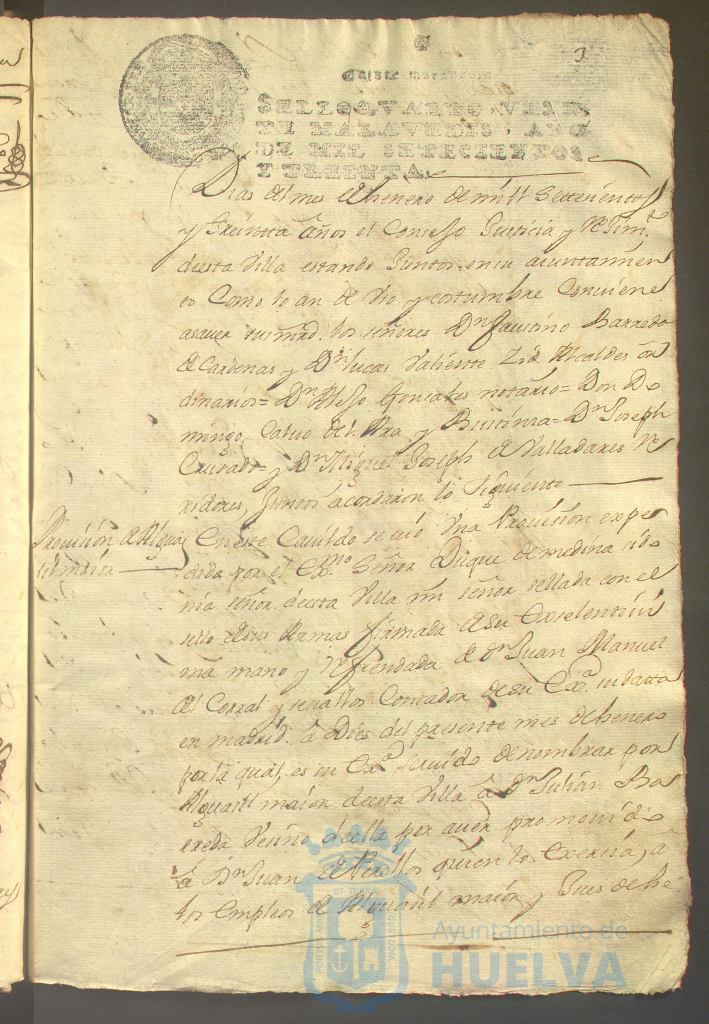 3
Veinte maravedis
SELLO QVARTO, VEIN
TE MARAVEDIS, AÑO
DE MIL SETECIENTOS
Y TREINTA.
Dias del mes de henero de mill Settecientos
y treinta años el Consejo Justicia y Rejim.to
de esta Villa estando Juntos en su aiuntamien
to Como lo an de Vso y costumbre Conviene
asauer sus md. los señores Dn faustino Barreda
de Cardenas y Dn lucas Valiente Alcaldes or
dinarios= Dn Gonzales notario= Don Do
mingo Calvo del y Dn Joseph
Crusado= y Dn Miguel Joseph de Valladares Re
xidores, Juntos acordaron lo siguiente
Provision de Alguaz
il maior
En este Cavildo se vio Vna Provision expe
dida por el Exmo Señor Duque de medina sido
nia señor de esta Villa mi señor sellada con el
sello de sus Armas firmada de su Exselentisi
ma mano y Refrendada de Dn Juan Manuel
del Corral y Contador de su Exa. su data
en madrid. a Dies del presente mes de henero
por la qual, es su Exa seruido de nombrar por
Alguasil maior de esta Villa â Dn Julian Ba
rreda Vesino de ella por auer promouido
â Dn Juan de quien lo exercia, â
los empleos de Alguasil maior y Jues de
Ayuntamiento de
HUELVA